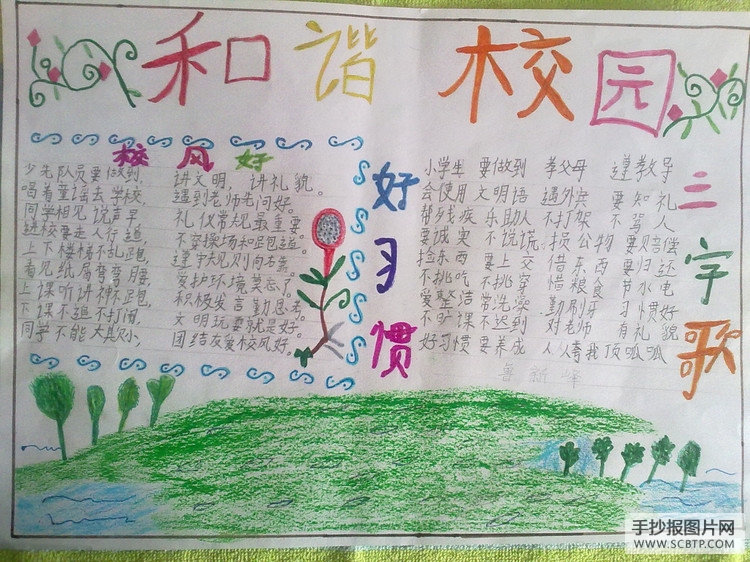 和谐校园
校风好
少先队员要做到，
唱着童谣去学校，
同学相见说声早，
进校要走人行道，
上下楼梯不乱跑，
看见纸屑弯弯腰，
上课听讲神不跑，
下课不追不打闹，
同学不能大欺小，
讲文明，讲礼貌。
遇到老师先问好。
礼仪常规最重要。
不穿操场和跑道。
遵守规则向右靠。
爱护环境莫忘了。
积极发言勤思考。
文明玩耍就是好。
团结友爱校风好。
好习惯
三字歌
小学生 要做到 孝父母 遵教导
会使用 文明语 遇外宾 要知礼
帮残疾 乐助人 不打架 不骂人
要诚实 不说谎 损公物 要赔偿
捡东西 要上交 借东西 要归还
不挑吃 不挑穿 惜粮食 节水电
爱整洁 常洗澡 勤刷牙 习惯好
不旷课 不迟到 对老师 有礼貌
好习惯 要养成 人人夸我 顶呱呱
手抄报图片网
WWW.SCBTP.COM